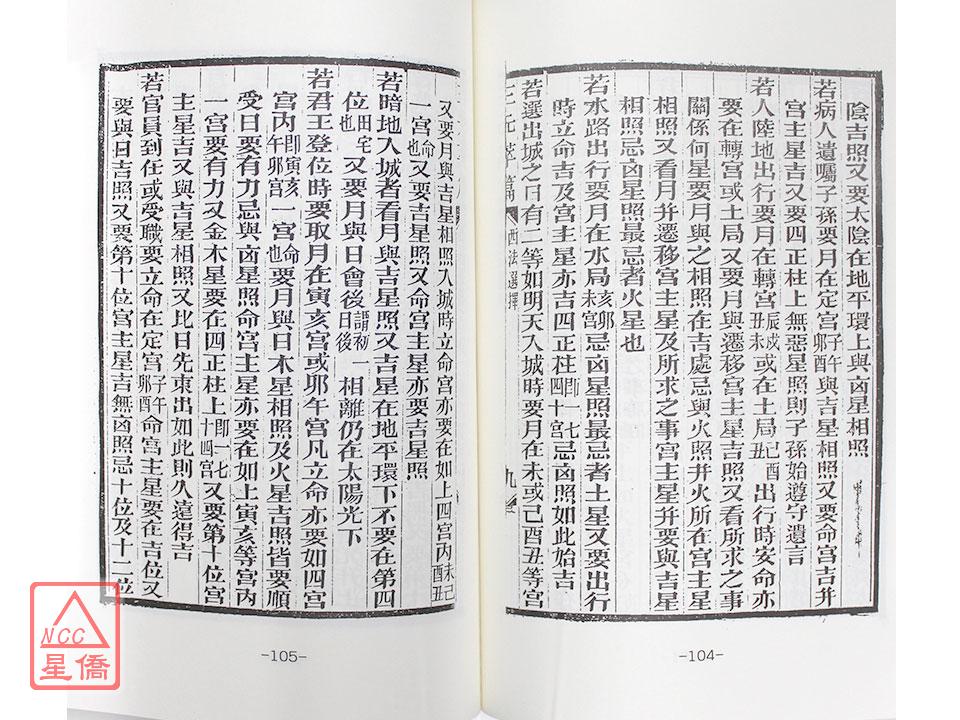 陰吉照又要太陰在地平環上與凶星相照
若病人遺囑子孫要月在定宮子午卯酉與吉星相照又要命宮吉并
宮主星吉又要四正柱上無惡星照則子孫始遵守遺言
若人陸地出行要月在轉宮辰戌丑未或在土局巳酉丑出行時安命亦
要在轉宮或土局又要月與遷移宮主星吉照又看所求之事
關係何星要月與之相照在吉處忌與火照并火所在宮主星
相照又看月并遷移宮主星及所求之事宮主星并要與吉星
相照忌凶星照最忌者火星也
若水路出行要月在水局亥卯未宮忌凶星照最忌者土星又要出行
時立命吉及宮主星亦吉四正柱即一七四十宮忌凶照如此始吉
若選出城之日有二等如明天入城時要月在未或己酉丑等宮
西法選擇
九
-104-
又要月與吉星相照入城時立命宮亦要在如上四宮內未己酉丑
一宮命也又要吉星照又命宮主星亦要吉星照
若暗地入城者看月與吉星照又吉星在地平環下不要在第四
位田宅也又要月與日會後謂初一日後相離仍在太陽光下
若君王登位時要取月在寅亥宮或耶午宮凡立命亦要如四宮
宮內即寅亥午卯宮一宮命也要月與日木星相照及火星吉照皆要順
受日要有力忌與凶星照命宮主星亦要在如上寅亥等宮內
一宮要有力又金木星要在四正柱上即一七十四宮又要第十位宮
主星吉又與吉星相照又比日先東出如此則久遠得吉
若官員到任或受職要立命在定宮子午卯酉命宮主星要在吉位又
要與日吉照又要第十位宮主星吉無凶照忌十位及十二位
-105-
NCC
星僑